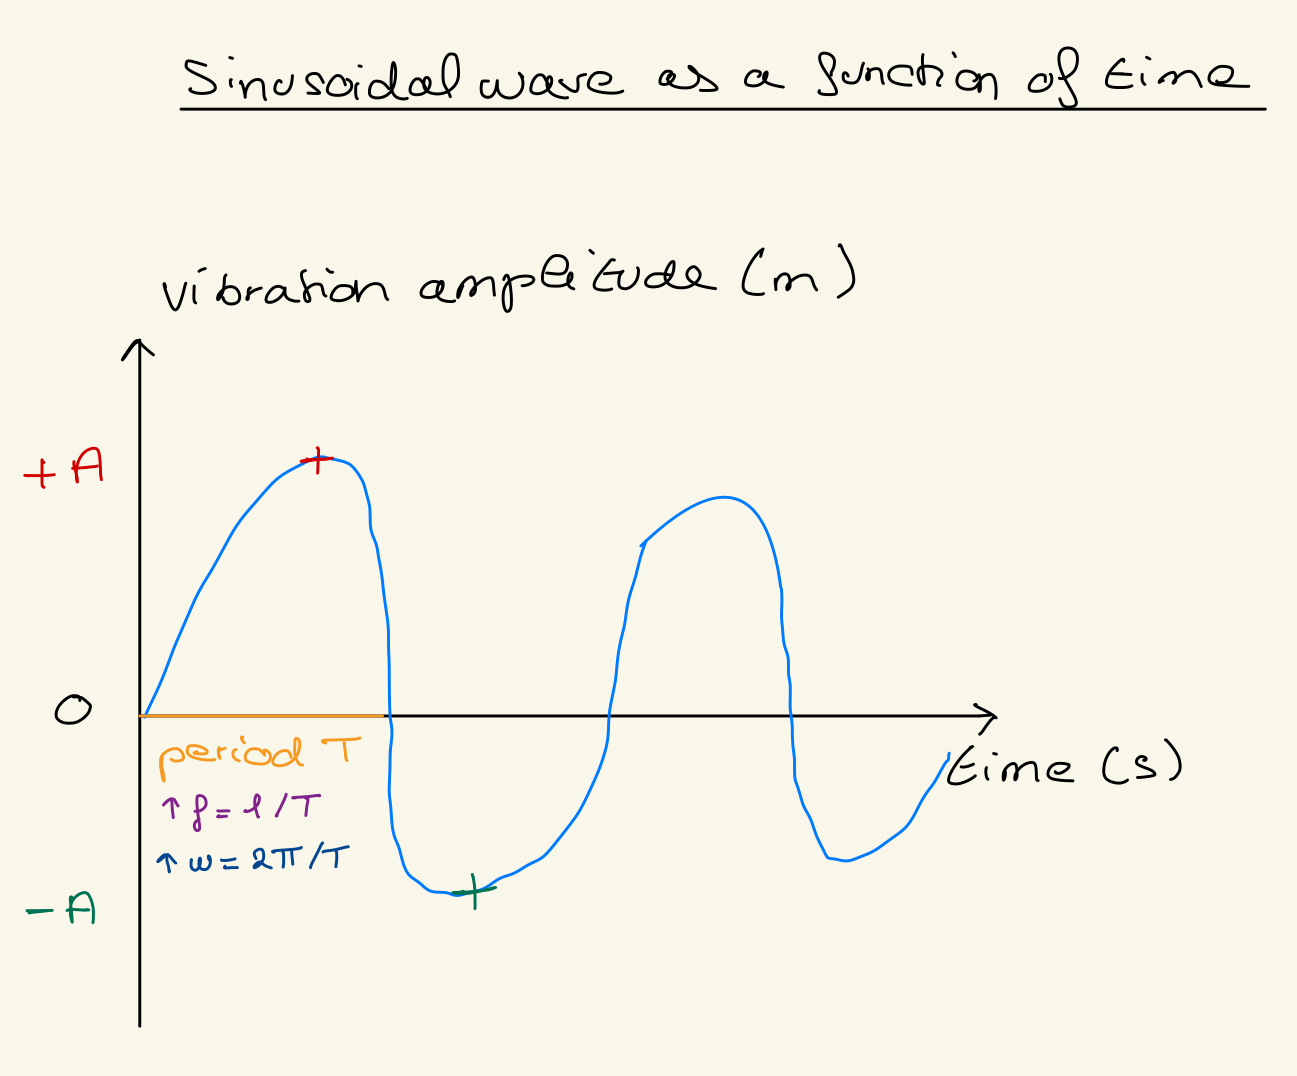 Sinusoidal wave as a function of time
vibration amplitude (m)
+A
0
period T
time (s)
↑ f = 1/T
↑ w = 2π/T
-A